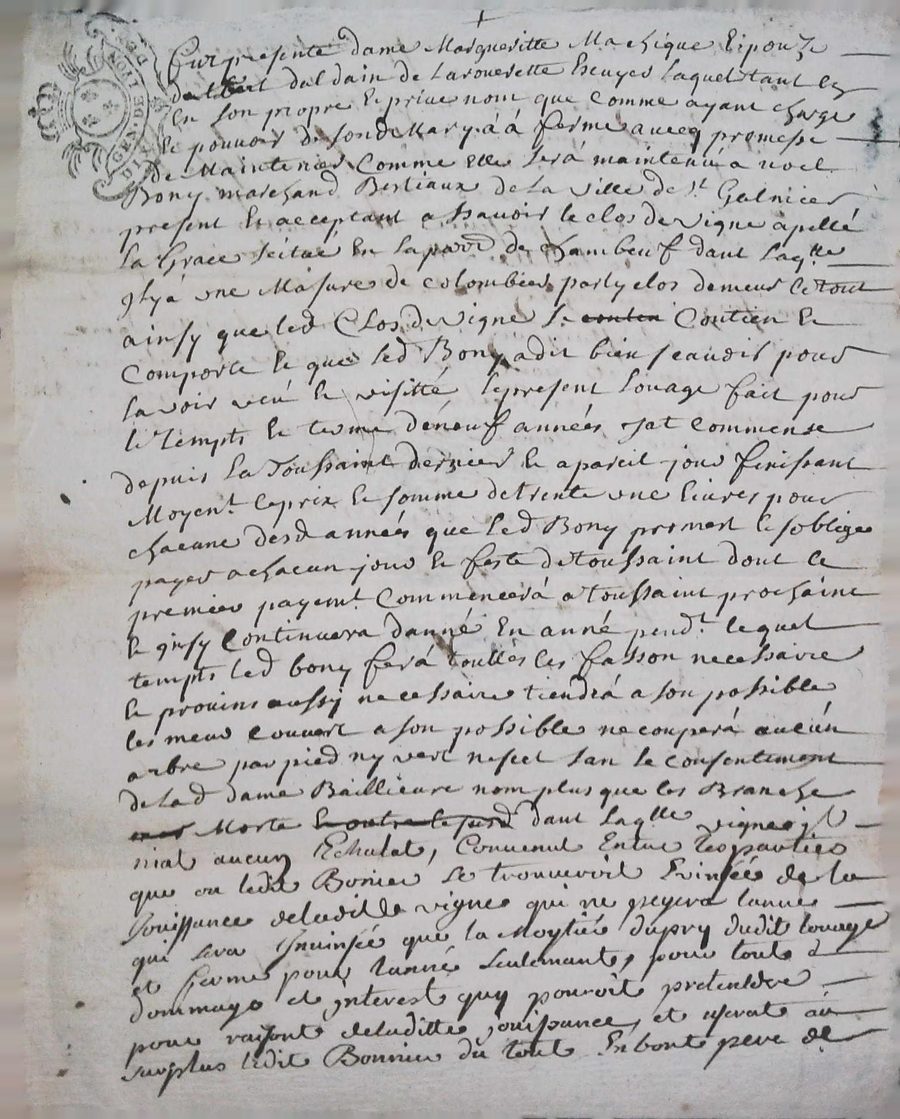 GEN. DE LION
Fut presente dame Margueritte Machique Espouze
de dal dain de Larouerette Escuyer Laquel tant en
En son propre Et prive nom que comme ayant charge
Et pouvoir de son de Mary á á fermé avecq promesse
de Maintenir Comme Elle Será maintenir a noel
Bony marchand Bestiaux de la ville de St Galnier
present Et acceptant a Scavoir le clos de vigne apellé
La Grace Scitué En la parr de Chambeuf dant Laqlle
jl y á une Masure de colombier party clos de meur Le tout
ainsy que led Clos de vigne Se contin Contien Et
Comporte Et que led Bony a dit bien scavoir pour
Lavoir veü Et visitté le present Louage fait pour
Le Temps Et terme de neuf années jat Commense
depuis La Toussaint dernier Et a pareil jour finissant
Moyent le prix Et somme de trente une Livres pour
chacune desd années que led Bony promest Et soblige
payer a chacun jour Et feste de Toussaint dont Le
premier payemt Commencerá a Toussaint prochaine
Et ainsy Continuera danné En anné pendt lequel
temps led bony ferá touttes les fasson necessaire
Et provins aussy necessaire tiendrá a son possible
les meur Couvert a son possible ne couperá aucún
arbre par pied ny vert ny sect san le consentement
de lad dame Baillieure nom plus que les Branche
Morte Et outre le susd dant Laqlle vigne jl
niat aucun Echalat, Convenut Entre les parties
que ou ledit Bonier Se trouveroit Evinsée de la
Jouissance de ladille vigne qui ne payera lanne
qui sera Invinsée que la Moytié du pry dudit louage
et ferme pour lanné seulemant, pour tout
dommage et jnterest quy pouroit pretendre
pour raison de laditte jouissance, et userat au
surplus ledit Bonnier du tout En bont pere de